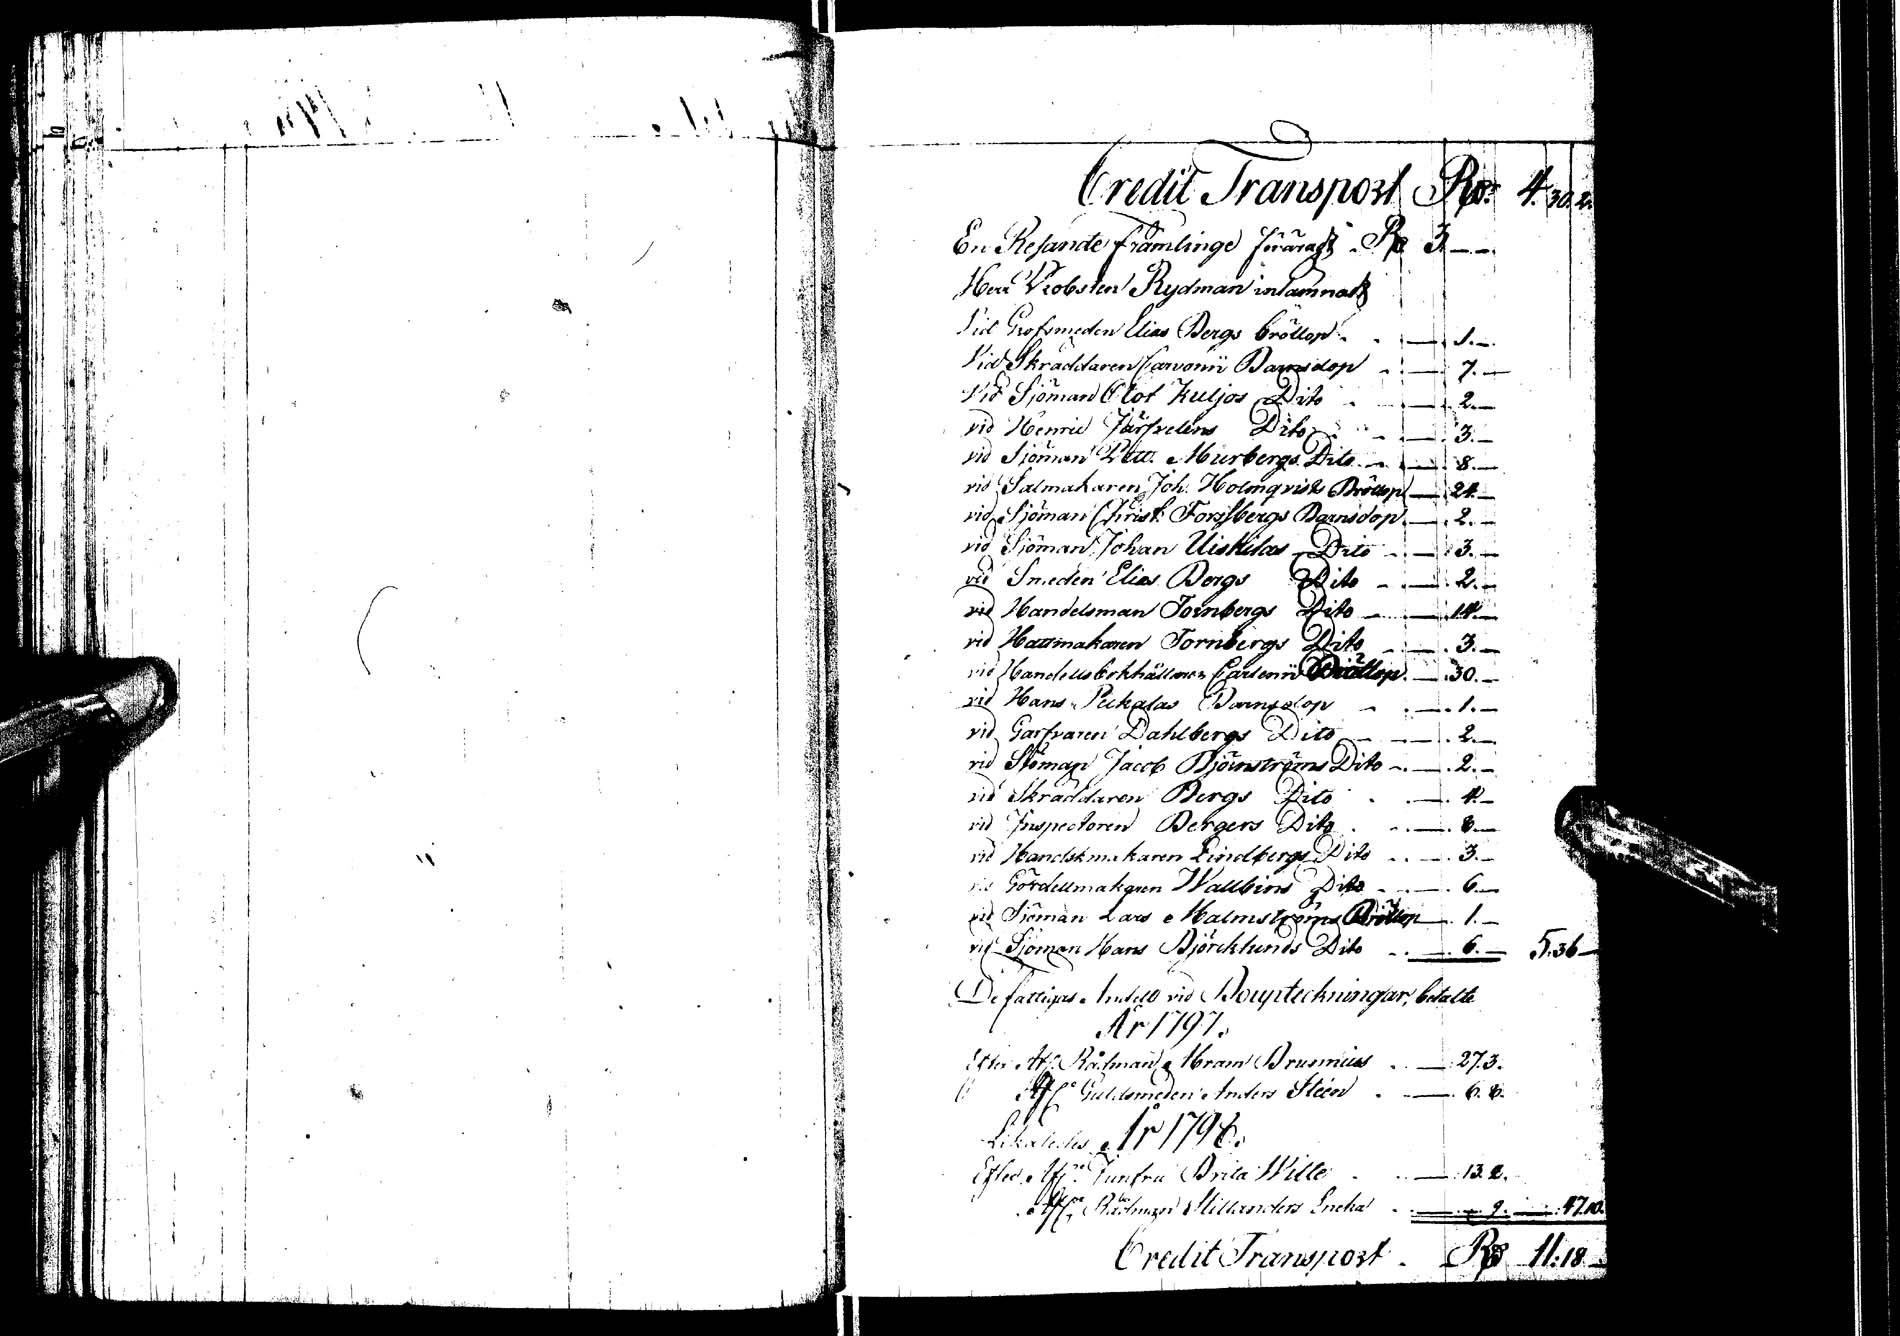 Credit Transport Rd: 4. 30. 2.
En Resande främlinge förärat Rd 3. —
Herr Probsten Rydman inlämnat
Vid Grofsmeden Elias Bergs bröllop — 1. —
Vid Skräddaren Barnsdop — 7. —
Vid Sjöman Olof Kuljos Dito — 2. —
vid Henric Järfvelins Dito — 3. —
vid Sjöman Pett. Murbergs Dito — 8. —
vid Salmakaren Joh. Holmqvists Bröllop — 24. —
vid Sjöman Christ. Forssbergs Barnsdop — 2. —
vid Sjöman Johan Uiskilas Dito — 3. —
vid Smeden Elias Bergs Dito — 2. —
vid Handelsman Tornbergs Dito — 14. —
vid Hattmakaren Tornbergs Dito — 3. —
vid Handels bokhållaren Carlenii Bröllop — 30. —
vid Hans Pukalas Barnsdop — 1. —
vid Garfvaren Dahlbergs Dito — 2. —
vid Sjöman Jacob Björnströms Dito — 2. —
vid Skräddaren Bergs Dito — 4. —
vid Inspectoren Bergers Dito — 8. —
vid Handskmakaren Lindbergs Dito — 3. —
vid Gördellmakaren Wallbins Dito — 6. —
vid Sjöman Lars Malmströms Bröllop — 1. —
vid Sjöman Hans Björcklunds Dito — 6. — 5. 36 —
De fattigas Andell vid Boupteckningar, betalte
År 1797.
Efter Afl. Rådman Abram Brunnius — 27. 3.
Afl. Guldsmeden Anders Steen — 6. 8.
Likaledes År 1798.
Efter Afl. Jungfru Brita Wille — 13. 2.
Afl. Rådman Encka — 9. — 47. 10.
Credit Transport Rd 11: 18 —